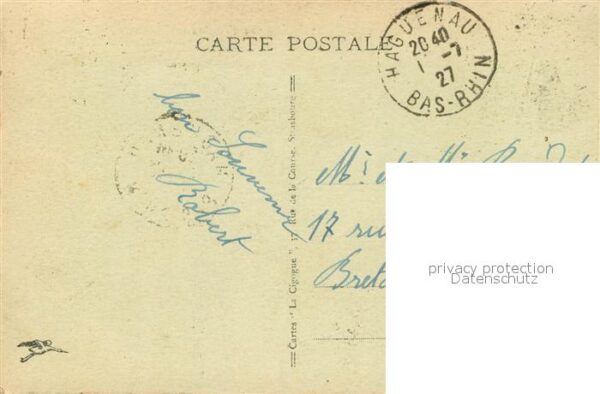 CARTE POSTALE
HAGUENAU
20 40
1 -7
27
BAS-RHIN
bon Souvenir
Robert
Cartes "La Cigogne", 17 Rue de la Course, Strasbourg
Mr et Mme
17 rue
privacy protection
Datenschutz